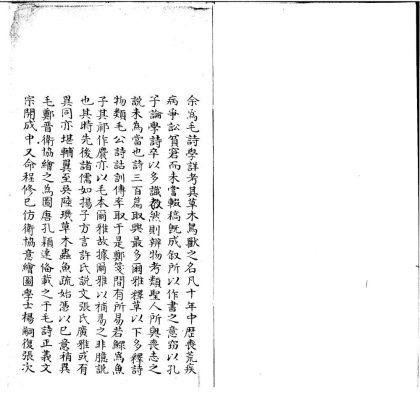 余為毛詩學詳考其草木鳥獸之名凡十年中歷喪荒疾
病爭訟貧窘而未嘗輟稿旣成叙所以作書之意窃以孔
子論學詩卒以多識教然則辨物考類聖人所與喪志之
說未為當也詩三百篇取興最多爾雅釋草以下多釋詩
物類毛公詩詁訓傳率取于是鄭箋間有所易若鰥為魚
子其鄁作麃亦以毛本爾雅故據爾雅以補易之非臆說
也其時先後諸儒如揚子方言許氏說文張氏廣雅或有
異同亦堪輔翼至吳陸璣草木虫魚疏始憑以已意稍異
毛鄭晉衛協繪之為圖唐孔穎達脩載之于毛詩正義文
宗開成中又命程修已仿衛協意繪圖學士楊嗣復張次